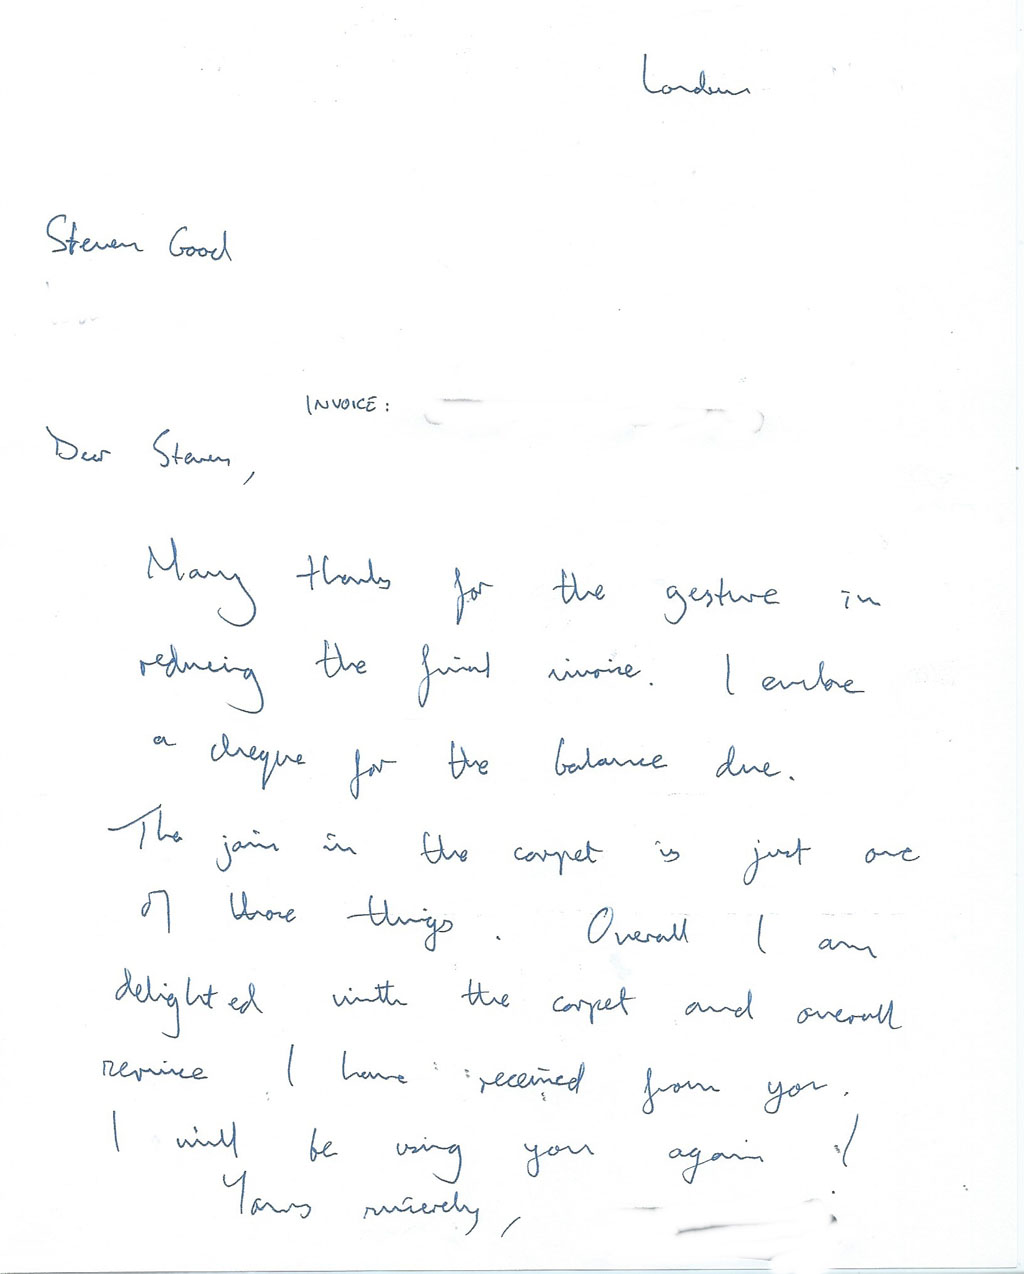 London
Steven Good
INVOICE:
Dear Steven,
Many thanks for the gesture in
reducing the final invoice. I enclose
a cheque for the balance due.
The join in the carpet is just one
of those things. Overall I am
delighted with the carpet and overall
service I have received from you.
I will be using you again !
Yours sincerely,